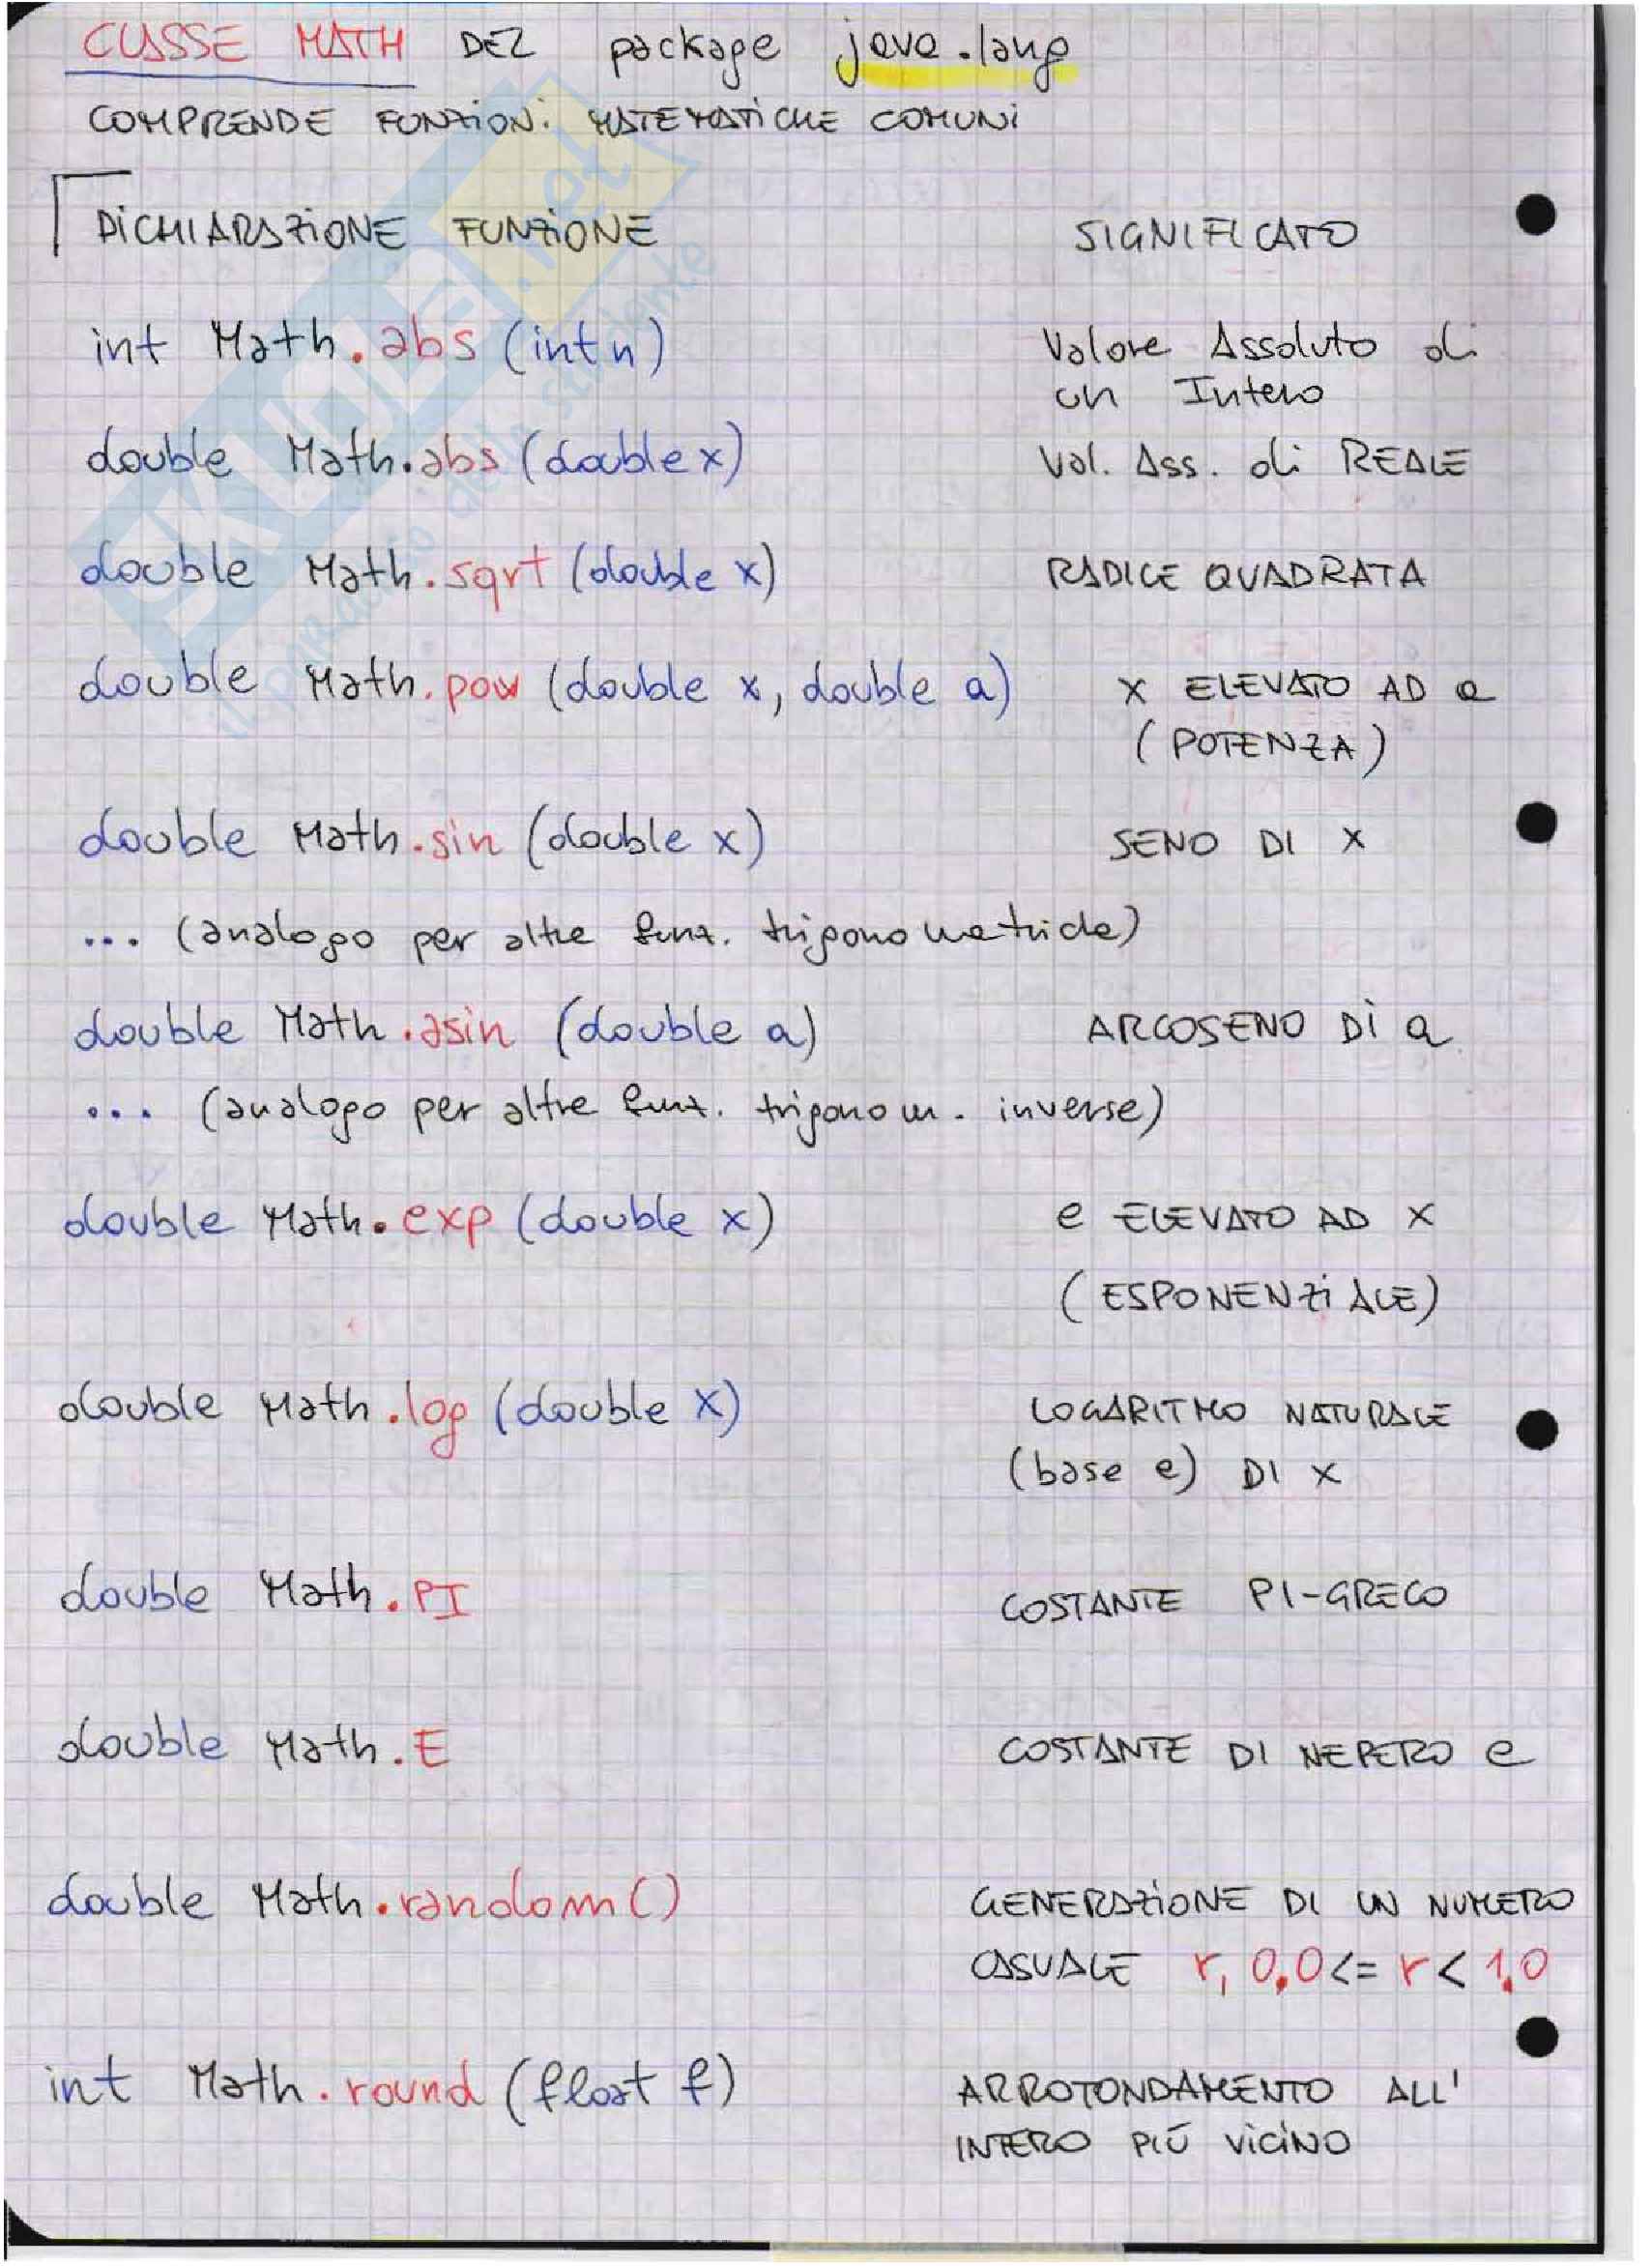 CLASSE MATH DEL package java.lang
COMPRENDE FUNZIONI MATEMATICHE COMUNI
DICHIARAZIONE FUNZIONE SIGNIFICATO
int Math.abs (int n) Valore Assoluto di
un Intero
double Math.abs (double x) Val. Ass. di REALE
double Math.sqrt (double x) RADICE QUADRATA
double Math.pow (double x, double a) x ELEVATO AD a
(POTENZA)
double Math.sin (double x) SENO DI X
... (analogo per altre funz. trigonometriche)
double Math.asin (double a) ARCOSENO DI a
... (analogo per altre funz. trigonom. inverse)
double Math.exp (double x) e ELEVATO AD X
(ESPONENZIALE)
double Math.log (double x) LOGARITMO NATURALE
(base e) DI X
double Math.PI COSTANTE PI-GRECO
double Math.E COSTANTE DI NEPERO e
double Math.random() GENERAZIONE DI UN NUMERO
CASUALE r, 0.0 <= r < 1.0
int Math.round (float f) ARROTONDAMENTO ALL'
INTERO PIÙ VICINO
SKUOLA.net
il paradiso dello studente